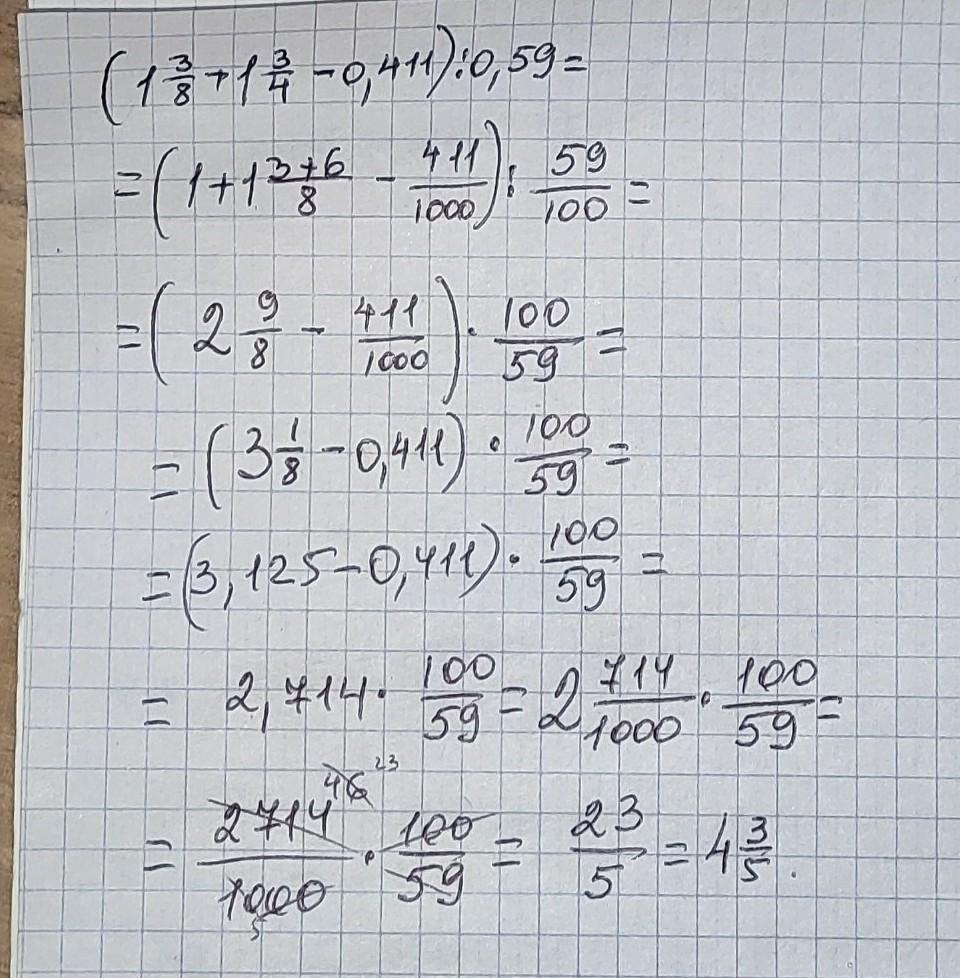 (1 3/8 + 1 3/4 - 0,411) : 0,59 =
= (1 + 1 (3+6)/8 - 411/1000) : 59/100 =
= (2 9/8 - 411/1000) · 100/59 =
= (3 1/8 - 0,411) · 100/59 =
= (3,125 - 0,411) · 100/59 =
= 2,714 · 100/59 = 2 714/1000 · 100/59 =
46 23
= 2714/1000 · 100/59 = 23/5 = 4 3/5.
5